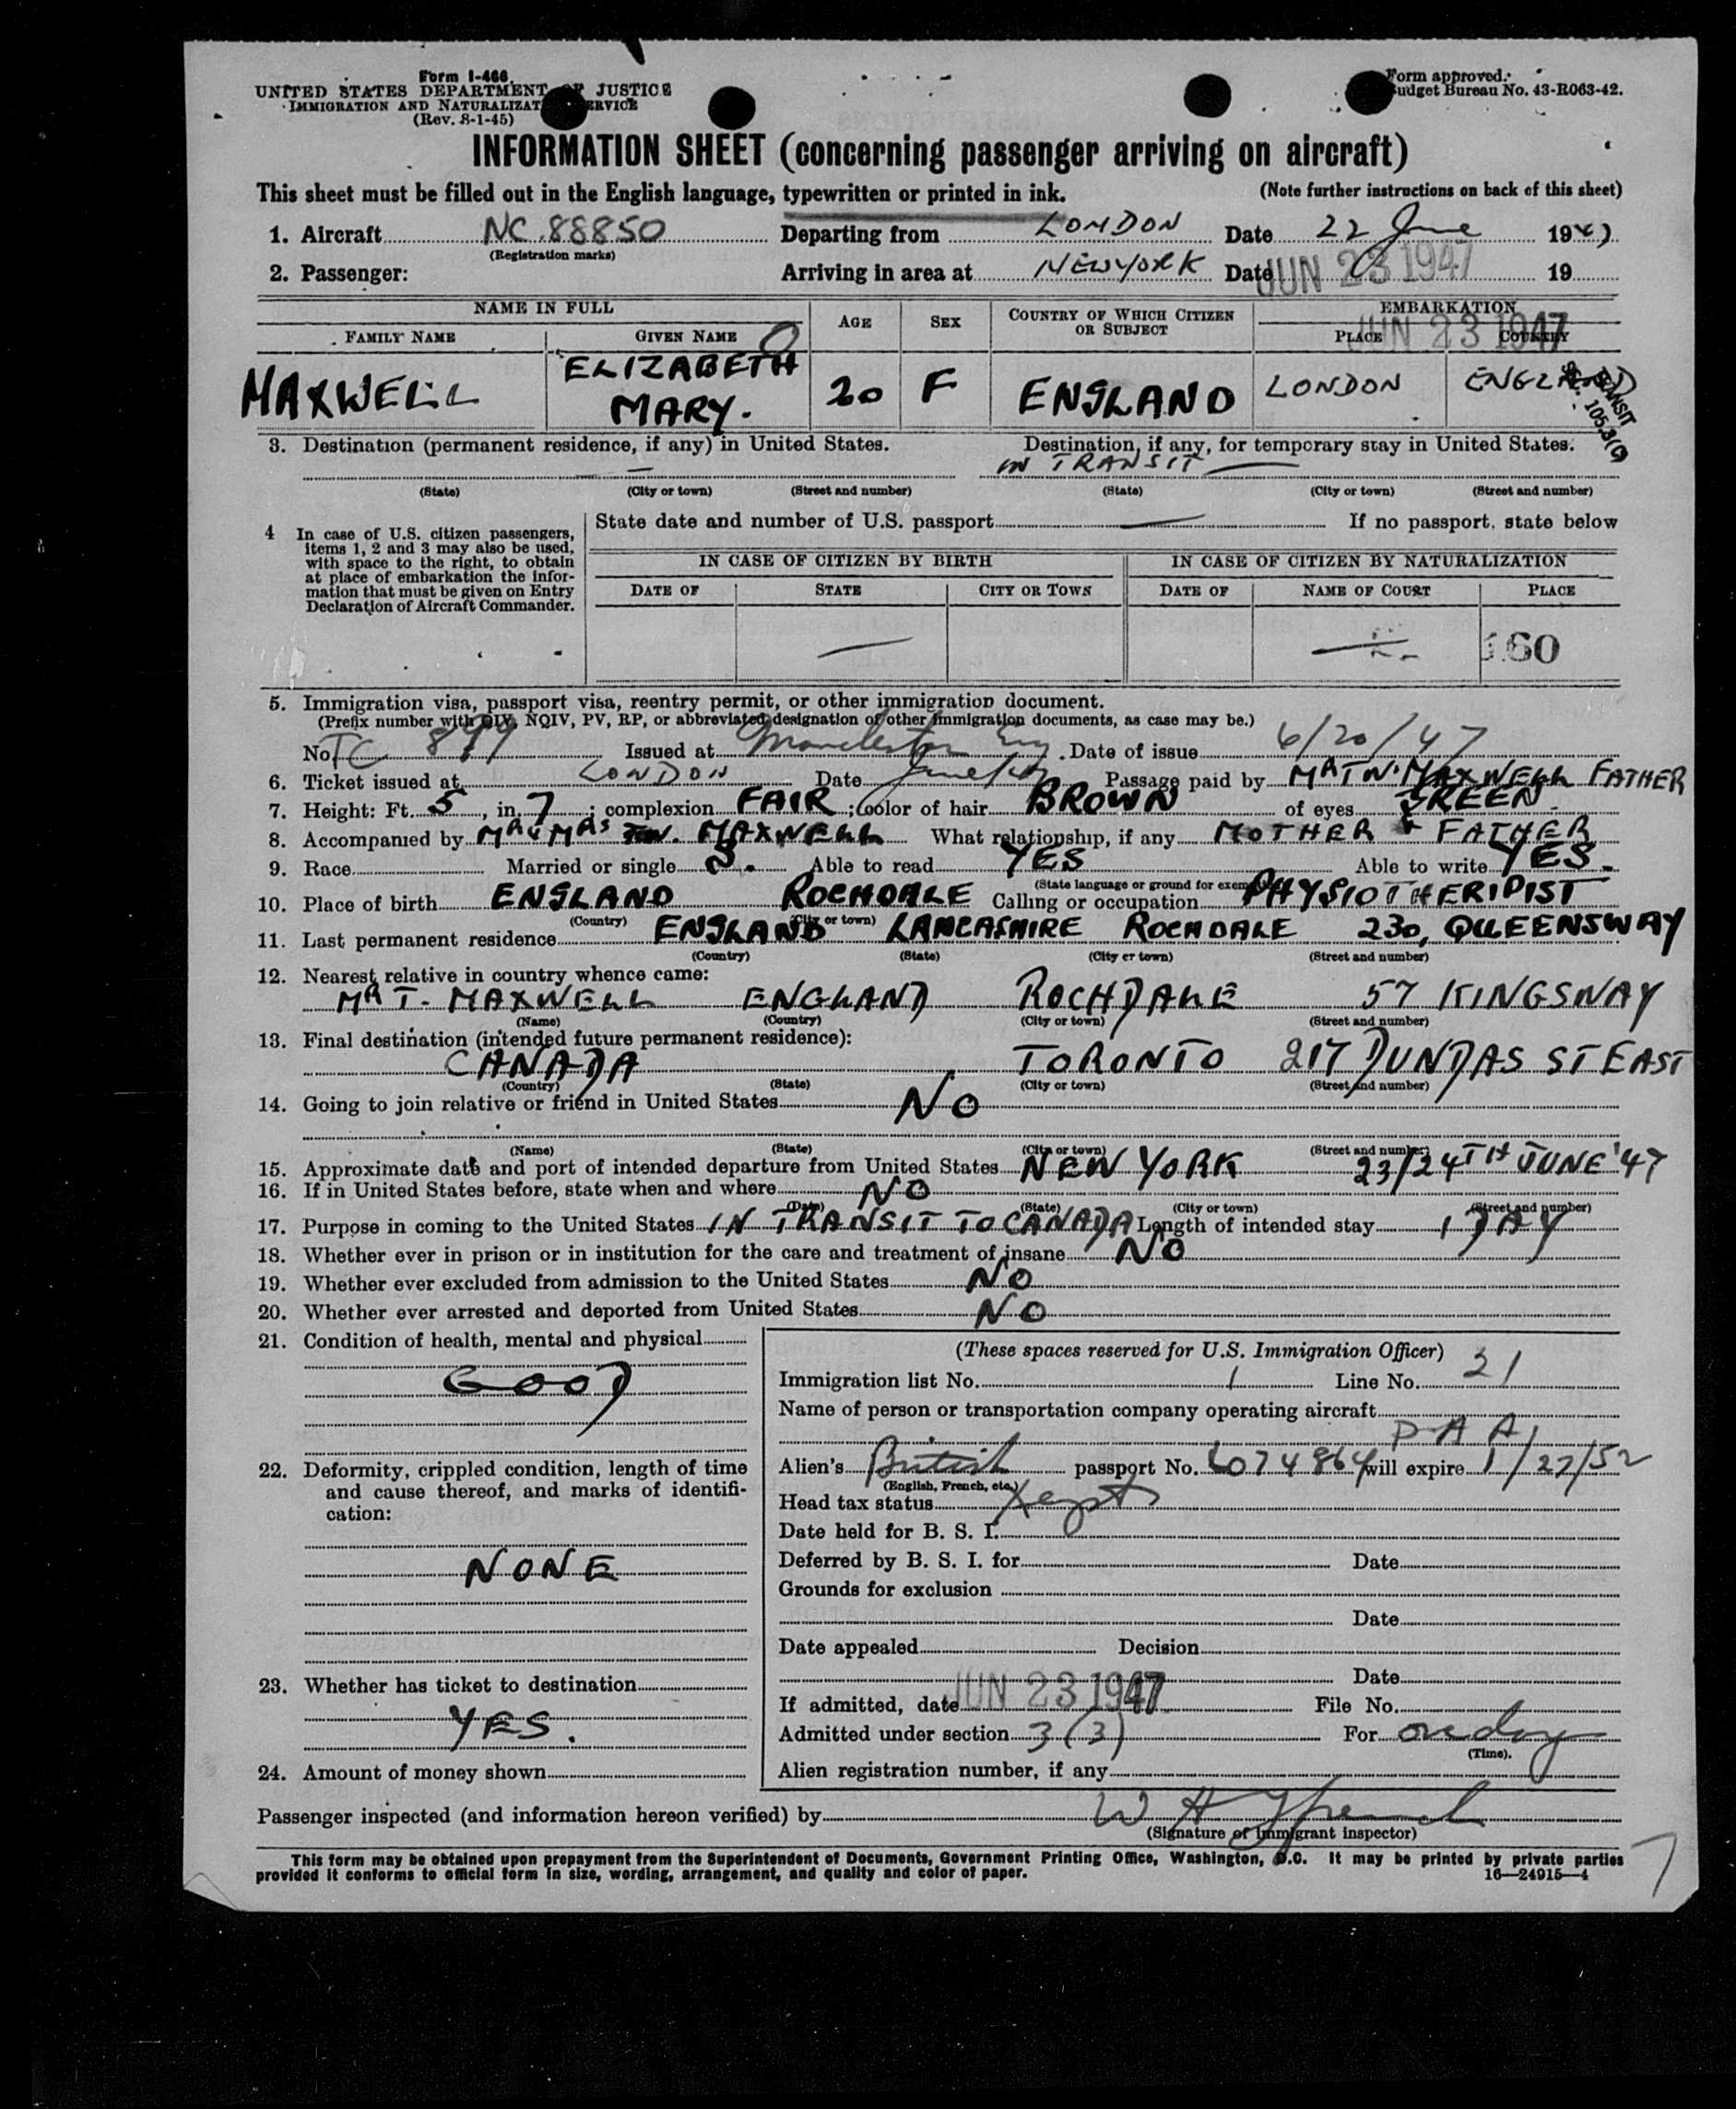 Form I-466
UNITED STATES DEPARTMENT OF JUSTICE
IMMIGRATION AND NATURALIZATION SERVICE
(Rev. 8-1-45)
Form approved.
Budget Bureau No. 43-R063-42.
INFORMATION SHEET (concerning passenger arriving on aircraft)
This sheet must be filled out in the English language, typewritten or printed in ink. (Note further instructions on back of this sheet)
1. Aircraft NC.88850 Departing from LONDON Date 22 June 1947
(Registration marks)
2. Passenger: Arriving in area at NEW YORK Date JUN 23 1947 19
NAME IN FULL AGE SEX COUNTRY OF WHICH CITIZEN OR SUBJECT EMBARKATION
JUN 23 1947
FAMILY NAME GIVEN NAME PLACE COUNTRY
MAXWELL ELIZABETH MARY. 20 F ENGLAND LONDON ENGLAND
TRANSIT
105.3(
3. Destination (permanent residence, if any) in United States. Destination, if any, for temporary stay in United States.
— IN TRANSIT —
(State) (City or town) (Street and number) (State) (City or town) (Street and number)
4 In case of U.S. citizen passengers, items 1, 2 and 3 may also be used, with space to the right, to obtain at place of embarkation the information that must be given on Entry Declaration of Aircraft Commander.
State date and number of U.S. passport — If no passport, state below
IN CASE OF CITIZEN BY BIRTH IN CASE OF CITIZEN BY NATURALIZATION
DATE OF STATE CITY OR TOWN DATE OF NAME OF COURT PLACE
— — 60
5. Immigration visa, passport visa, reentry permit, or other immigration document.
(Prefix number with QIV, NQIV, PV, RP, or abbreviated designation of other immigration documents, as case may be.)
No. TC 899 Issued at Manchester Eng Date of issue 6/20/47
6. Ticket issued at LONDON Date June Passage paid by MR T.W. MAXWELL FATHER
7. Height: Ft. 5, in. 7; complexion FAIR; Color of hair BROWN of eyes GREEN
8. Accompanied by MR & MRS T.W. MAXWELL What relationship, if any MOTHER & FATHER
9. Race Married or single S. Able to read YES Able to write YES.
(State language or ground for exemption)
10. Place of birth ENGLAND ROCHDALE Calling or occupation PHYSIOTHERIPIST
(Country) (City or town)
11. Last permanent residence ENGLAND LANCASHIRE ROCHDALE 230, QUEENSWAY
(Country) (State) (City or town) (Street and number)
12. Nearest relative in country whence came:
MR T. MAXWELL ENGLAND ROCHDALE 57 KINGSWAY
(Name) (Country) (City or town) (Street and number)
13. Final destination (intended future permanent residence):
CANADA TORONTO 217 DUNDAS ST EAST
(Country) (State) (City or town) (Street and number)
14. Going to join relative or friend in United States NO
(Name) (State) (City or town) (Street and number)
15. Approximate date and port of intended departure from United States NEW YORK 23/24TH JUNE '47
16. If in United States before, state when and where NO
(Date) (State) (City or town) (Street and number)
17. Purpose in coming to the United States IN TRANSIT TO CANADA Length of intended stay 1 DAY
18. Whether ever in prison or in institution for the care and treatment of insane NO
19. Whether ever excluded from admission to the United States NO
20. Whether ever arrested and deported from United States NO
21. Condition of health, mental and physical
GOOD
22. Deformity, crippled condition, length of time and cause thereof, and marks of identification:
NONE
23. Whether has ticket to destination
YES.
24. Amount of money shown
(These spaces reserved for U.S. Immigration Officer)
Immigration list No. 1 Line No. 21
Name of person or transportation company operating aircraft
P A A
Alien's British passport No. 6074864 will expire 1/27/52
(English, French, etc.)
Head tax status
Date held for B. S. I.
Deferred by B. S. I. for Date
Grounds for exclusion
Date
Date appealed Decision
Date
If admitted, date JUN 23 1947 File No.
Admitted under section 3(3) For one day
(Time).
Alien registration number, if any
Passenger inspected (and information hereon verified) by W H
(Signature of immigrant inspector)
This form may be obtained upon prepayment from the Superintendent of Documents, Government Printing Office, Washington, D.C. It may be printed by private parties
provided it conforms to official form in size, wording, arrangement, and quality and color of paper. 16—24915—4
7